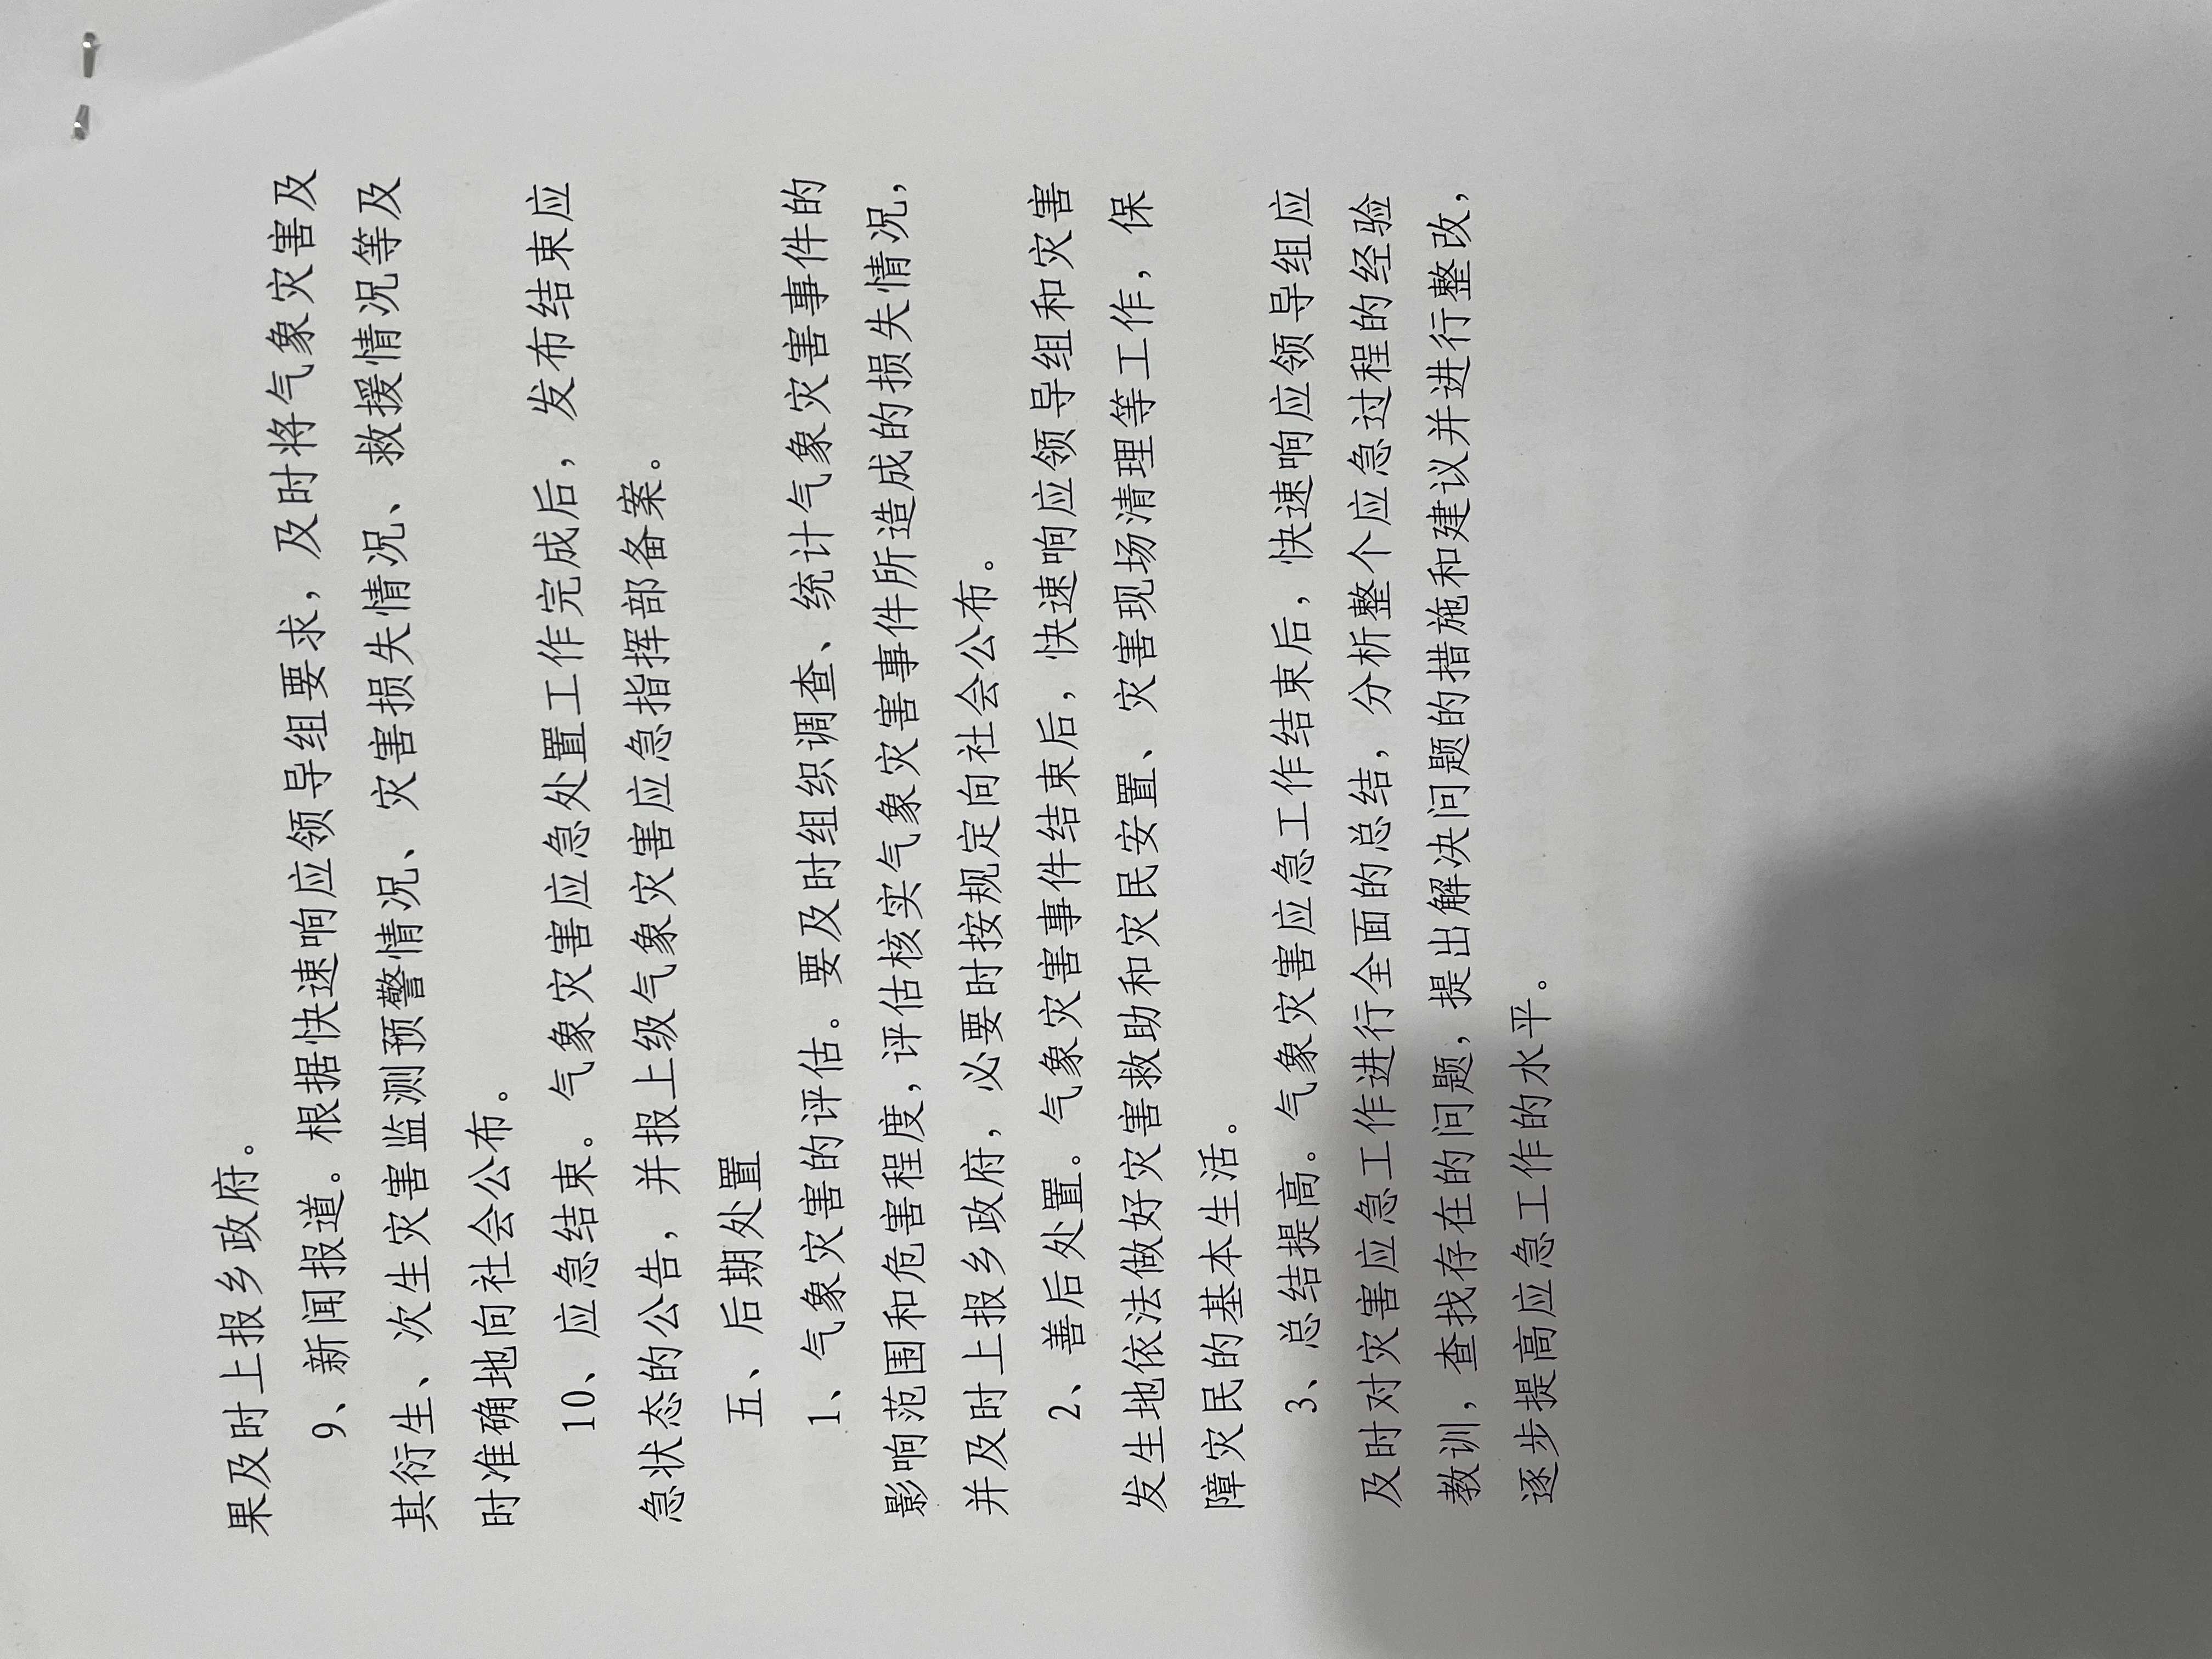 果及时上报乡政府。
9、新闻报道。根据快速响应领导组要求，及时将气象灾害及
其衍生、次生灾害监测预警情况、灾害损失情况、救援情况等及
时准确地向社会公布。
10、应急结束。气象灾害应急处置工作完成后，发布结束应
急状态的公告，并报上级气象灾害应急指挥部备案。
五、后期处置
1、气象灾害的评估。要及时组织调查、统计气象灾害事件的
影响范围和危害程度，评估核实气象灾害事件所造成的损失情况，
并及时上报乡政府，必要时按规定向社会公布。
2、善后处置。气象灾害事件结束后，快速响应领导组和灾害
发生地依法做好灾害救助和灾民安置、灾害现场清理等工作，保
障灾民的基本生活。
3、总结提高。气象灾害应急工作结束后，快速响应领导组应
及时对灾害应急工作进行全面的总结，分析整个应急过程的经验
教训，查找存在的问题，提出解决问题的措施和建议并进行整改，
逐步提高应急工作的水平。